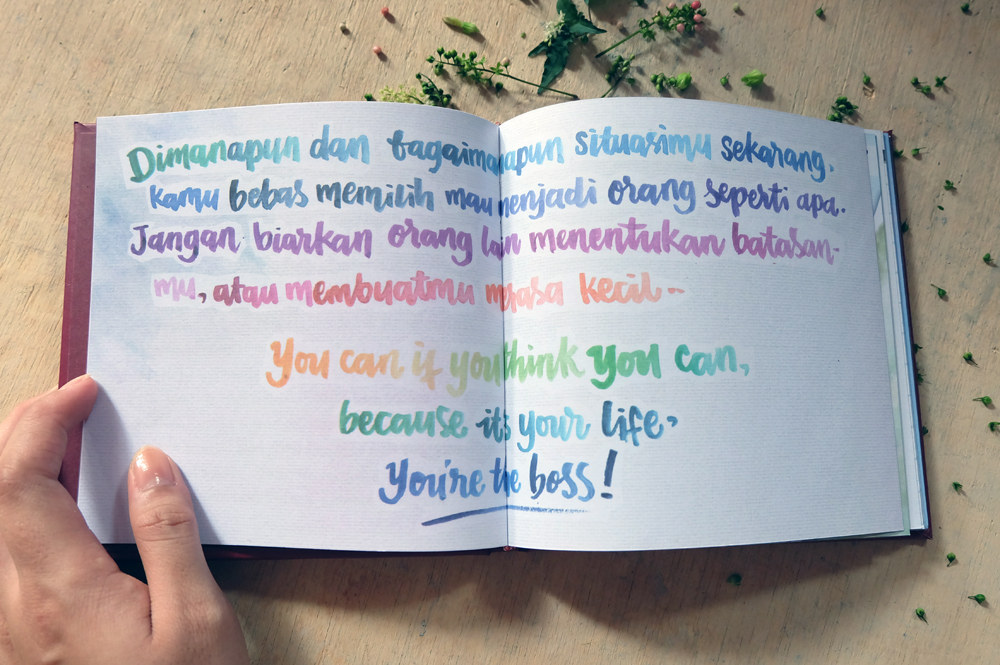 Dimanapun dan bagaimanapun situasimu sekarang,
kamu bebas memilih mau menjadi orang seperti apa.
Jangan biarkan orang lain menentukan batasan-
mu, atau membuatmu merasa kecil-
You can if you think you can,
because it's your life,
You're the boss!